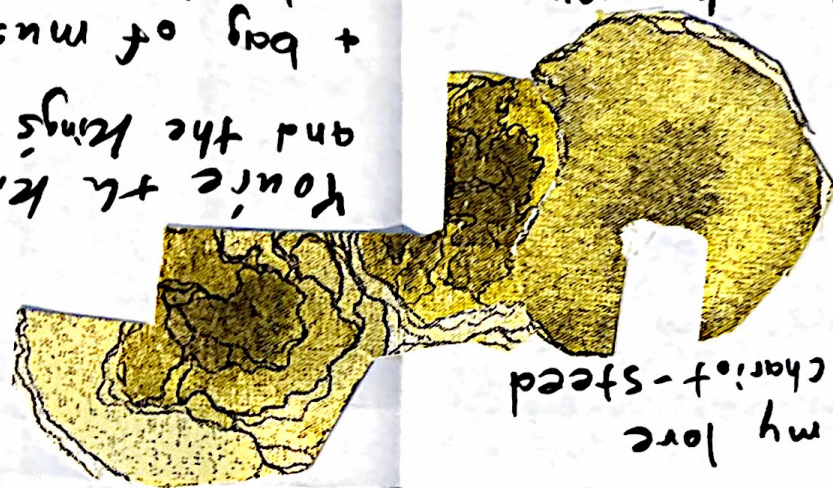 my love
chariot-steed
You're th k
and the king's
+ bag of mus